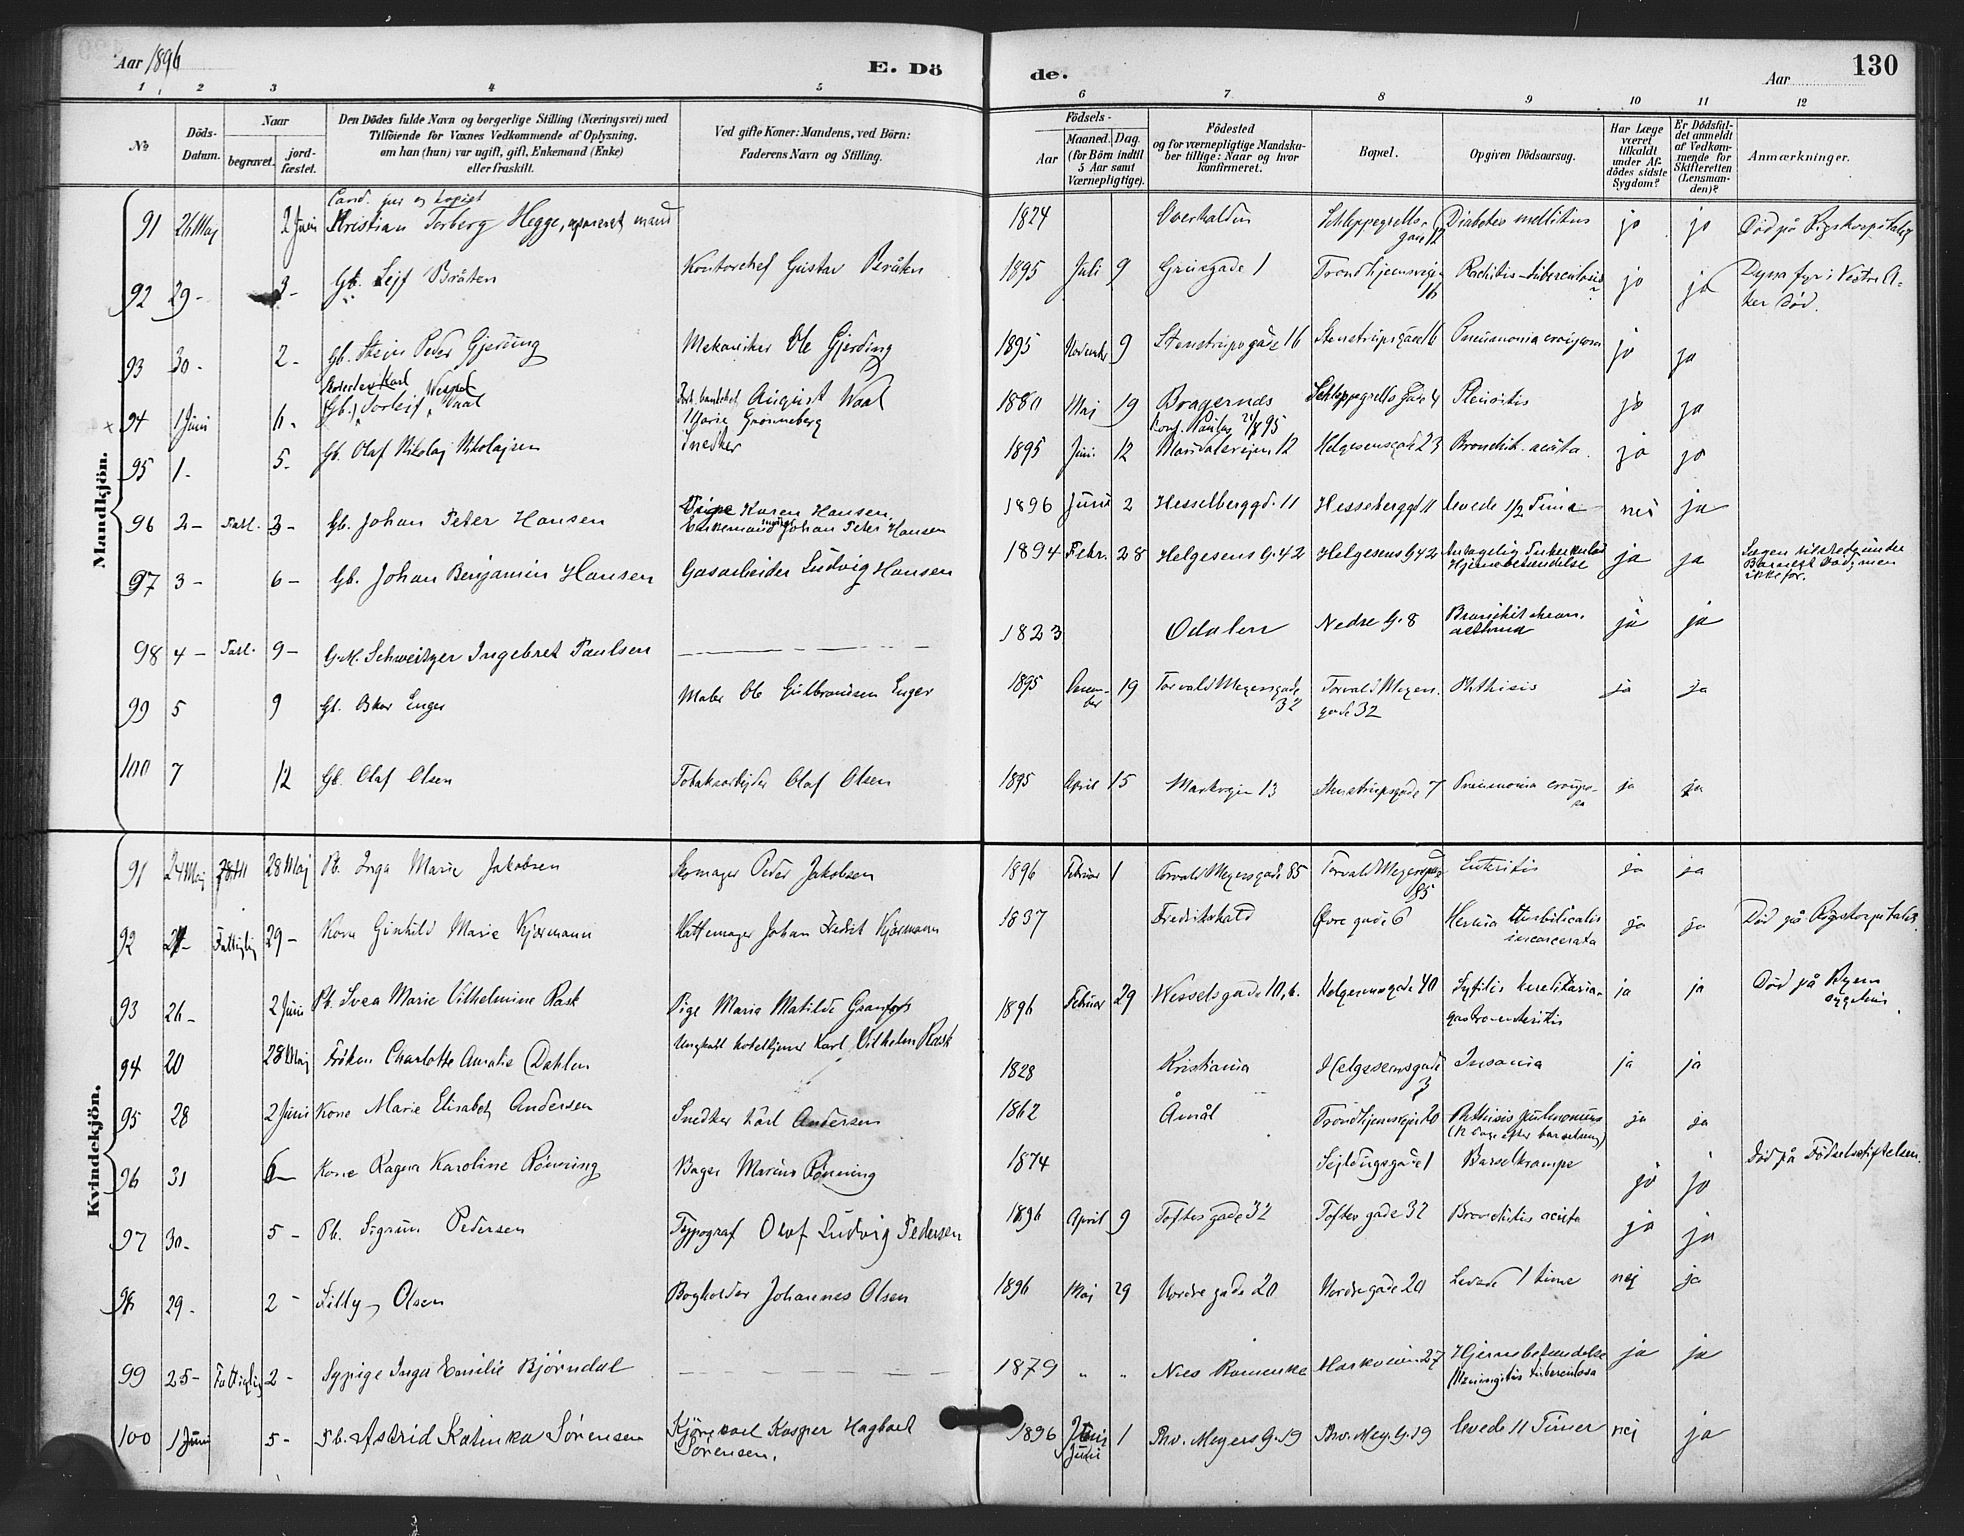 Aar 1896
E. Dö
de.
Aar
130
1 2 3 4 5 6 7 8 9 10 11 12
No
Döds-Datum.
Naar
begravet.
jordfæstet.
Den Dödes fulde Navn og borgerlige Stilling (Næringsvei) med
Tilföiende for Voxnes Vedkommende af Oplysning,
om han (hun) var ugift, gift, Enkemand (Enke)
eller fraskilt.
Ved gifte Koner: Mandens, ved Börn:
Faderens Navn og Stilling.
Födsels-
Aar
Maaned. Dag.
(for Börn indtil
5 Aar samt
Værnepligtige).
Födested
og for værnepligtige Mandska-
ber tillige: Naar og hvor
konfirmeret.
Bopæl.
Opgiven Dödsaarsag.
Har Læge
været
tilkaldt
under Af-
dödes sidste
Sygdom?
Er Dödsfal-
det anmeldt
af Vedkom-
mende for
Skifteretten
(Lensman-
den)?
Anmærkninger.
Mandkjön.
Cand. jur og kopist
91 26 Maj 2 Juni Kristian Torberg Hegge, separeret mand 1824 Overhalden Schleppegrells-gade 12 Diabetes mellitus ja ja Død på Rigshospitalet
92 29 - 3 - Gb. Lejf Bråten Kontorchef Gustav Bråten 1895 Juli 9 Grünsgade 1 Trondhjemsvejen 16 Rachitis - tuberculosis? ja ja Dyssa fyr i Vestre A-
ker Død.
93 30 - 2 - Gb. Stein Peder Gjerding Mekaniker Ole Gjerding 1895 November 9 Stenstrupsgade 16 Stenstrupsgade 16 Pneumonia crouposa ja ja
94 1 Juni 6 - Gb. Torleif Waal August Waal 1880 Maj 19 Bragernes Schleppegrells Gade 4 Pleuritis ja ja
Marie Grønneberg
Konf. Paulus 95
95 1 - 5 - Gb. Olaf Nikolaj Nikolajsen Snedker 1895 Juni 12 Maridalsvejen 12 Helgesensgade 23 Bronchit. acuta. ja ja
96 2 - Fatt. 3 - Gb. Johan Peter Hansen Pige Karen Hansen.
Enkemand Johan Peter Hansen 1896 Juni 2 Hesselberggd. 11 Hesselberggd 11 levede 1/2 Time nei ja
97 3 - 6 - Gb. Johan Benjamin Hansen Gasarbeider Ludvig Hansen 1894 Febr. 28 Helgesens G. 42 Helgesens G 42 Antagelig Tuberkuløs
Hjernebetændelse ja ja Lægen tilstede under
men
ikke før.
98 4 - Fatt. 9 - G.M. Schweitzer Ingebret Paulsen 1823 Odalen Nedre G. 8 Bronchit chron.
asthma ja ja
99 5 9 Gb. Oskar Enger Maler Ole Gulbrandsen Enger 1895 December 19 Torvald Meyersgade 32 Torvald Meyers-
gade 32 Phthisis ja ja
100 7 12 Gb. Olaf Olsen Tobaksarbejder Olaf Olsen 1895 April 15 Markvejen 13 Stenstrupsgade 7 Pneumonia croupo-
sa ja ja
Kvindekjön.
91 24 Maj 28 Maj Pb. Inga Marie Jakobsen Skomager Peder Jakobsen 1896 Februar 1 Torvald Meyersgade 85 Torvald Meyersgade 85 Enteritis ja ja
92 Fattiglig 29 - Kone Gunhild Marie Kjormann Hattemager Johan Fredrik Kjormann 1837 Fredrikshald Øvre gade 6 Hernia Umbilicalis
incarcerata ja ja Død på Rigshospitalet.
93 26 - 2 Juni Pb. Svea Marie Vilhelmine Rask Pige Maria Matilde Granfors
Ungkarl hoteltjener Karl Vilhelm Rask 1896 Februar 29 Wesselsgade 10, b. Helgesensgade 40 Syfilis hereditaria -
gastroenteritis ja ja Død på Ryens
sygehus
94 20 28 Maj Frøken Charlotte Amalie Dahlen 1828 Kristiania Helgesensgade 3 Insania ja ja
95 28 2 Juni Kone Marie Elisabeth Andersen Snedker Karl Andersen 1862 Åmål Trondhjemsvejen 20 Phthisis pulmonum
(12 Dage efter barselseng) ja ja
96 31 6 - Kone Ragna Karoline Rønning Bager Marius Rønning 1874 Sejldugsgade 1 Barselkrampe ja ja Død på Fødselsstiftelsen.
97 30 - 5 - Pb. Sigrun Pedersen Typograf Olof Ludvig Pedersen 1896 April 9 Toftes gade 32 Toftes gade 32 Bronchitis acuta ja ja
98 29 - 2 - Lilly Olsen Bogholder Johannes Olsen 1896 Maj 29 Nordre gade 20 Nordre gade 20 Levede 1 time nej ja
99 25 - Fattiglig 2 - Sypige Inga Emilie Bjørndal 1879 " " Nes Romerike Markveien 27 Hjernebetændelse
Meningitis tuberculosa ja ja
100 1 Juni 5 - Pb. Astrid Katinka Sørensen Kjørekarl Kasper Hagbart
Sørensen. 1896 Juni 1 Thv. Meyers G. 19 Thv. Mey. G. 19 levede 11 Timer nej ja